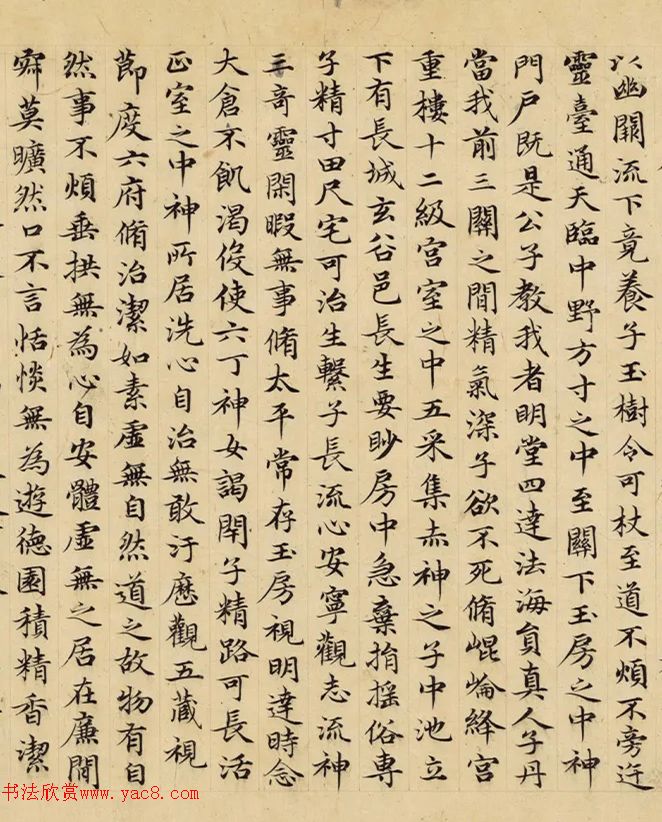 以幽闕流下竟養子玉樹令可杖至道不煩不旁迕
靈臺通天臨中野方寸之中至關下玉房之中神
門戶既是公子教我者明堂四達法海員真人子丹
當我前三關之間精氣深子欲不死脩崐崘絳宮
重樓十二級宮室之中五采集赤神之子中池立
下有長城玄谷邑長生要眇房中急棄捐搖俗專
子精寸田尺宅可治生繫子長流心安寧觀志流神
三奇靈閑暇無事脩太平常存玉房視明達時念
大倉不飢渴伇使六丁神女謁閉子精路可長活
正室之中神所居洗心自治無敢汙歷觀五藏視
節度六府脩治潔如素虛無自然道之故物有自
然事不煩垂拱無為心自安體虛無之居在廉間
寂莫曠然口不言恬惔無為遊德園積精香潔
书法欣赏www.yac8.com